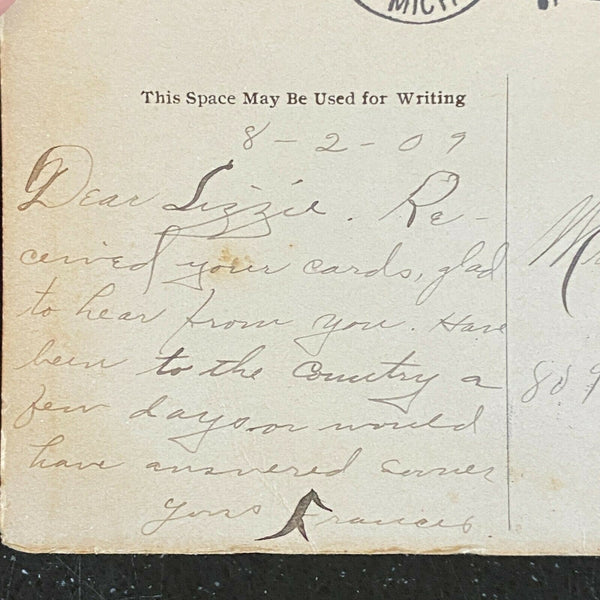 MICH
This Space May Be Used for Writing
8-2-09
Dear Lizzie. Re-
ceived your cards, glad
to hear from you. Have
been to the country a
few days or would
have answered sooner
Yours Frances.